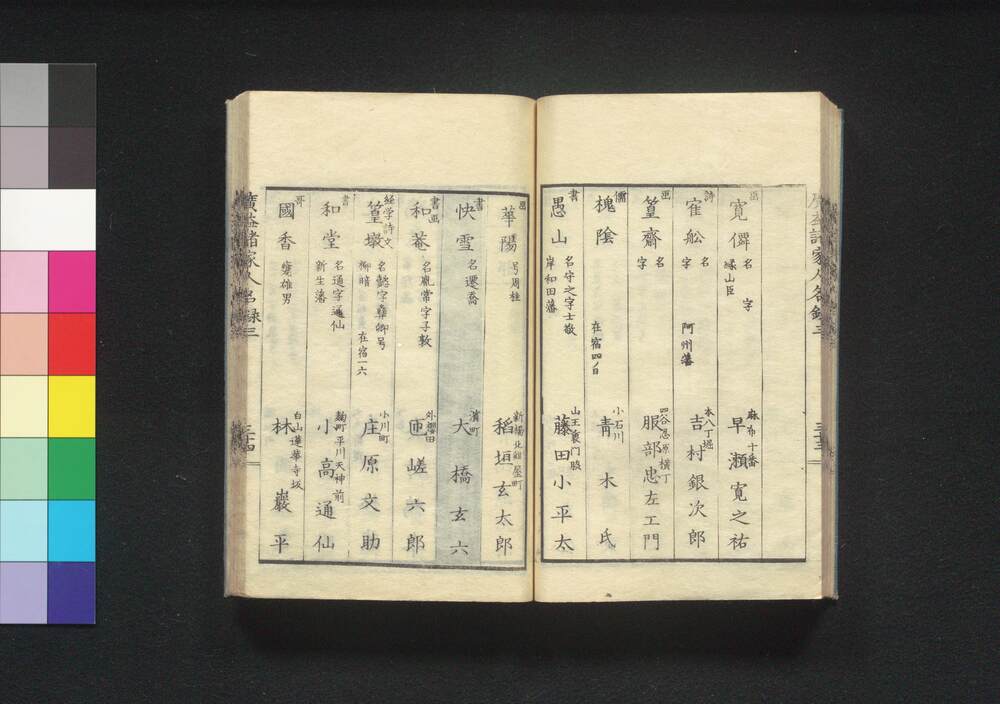 画
寛僲
名 字
縁山臣
麻布十番
早瀬寛之祐
詩
寉舩
名
字
阿州藩
本八丁堀
吉村銀次郎
画
篁齋
名
字
四谷忍原横丁
服部忠左エ門
儒
槐陰
在宿四ノ日
小石川
青木氏
書
愚山
名守之字士敬
岸和田藩
山王裏門脇
藤田小平太
華陽
号周桂
新橋北紺屋町
稲垣玄太郎
書
快雪
名還喬
濱町
大橋玄六
書画
和菴
名胤常字子敦
外櫻田
匝嵯六郎
経学詩文
篁墩
名懿字彜卿号
柳暗
在宿一六
小川町
庄原文助
書
和堂
名通字通仙
新生藩
麹町平川天神前
小高通仙
哥
國香
甕雄男
白山蓮華寺坂
林巖平
廣益諸家人名録三
三十四